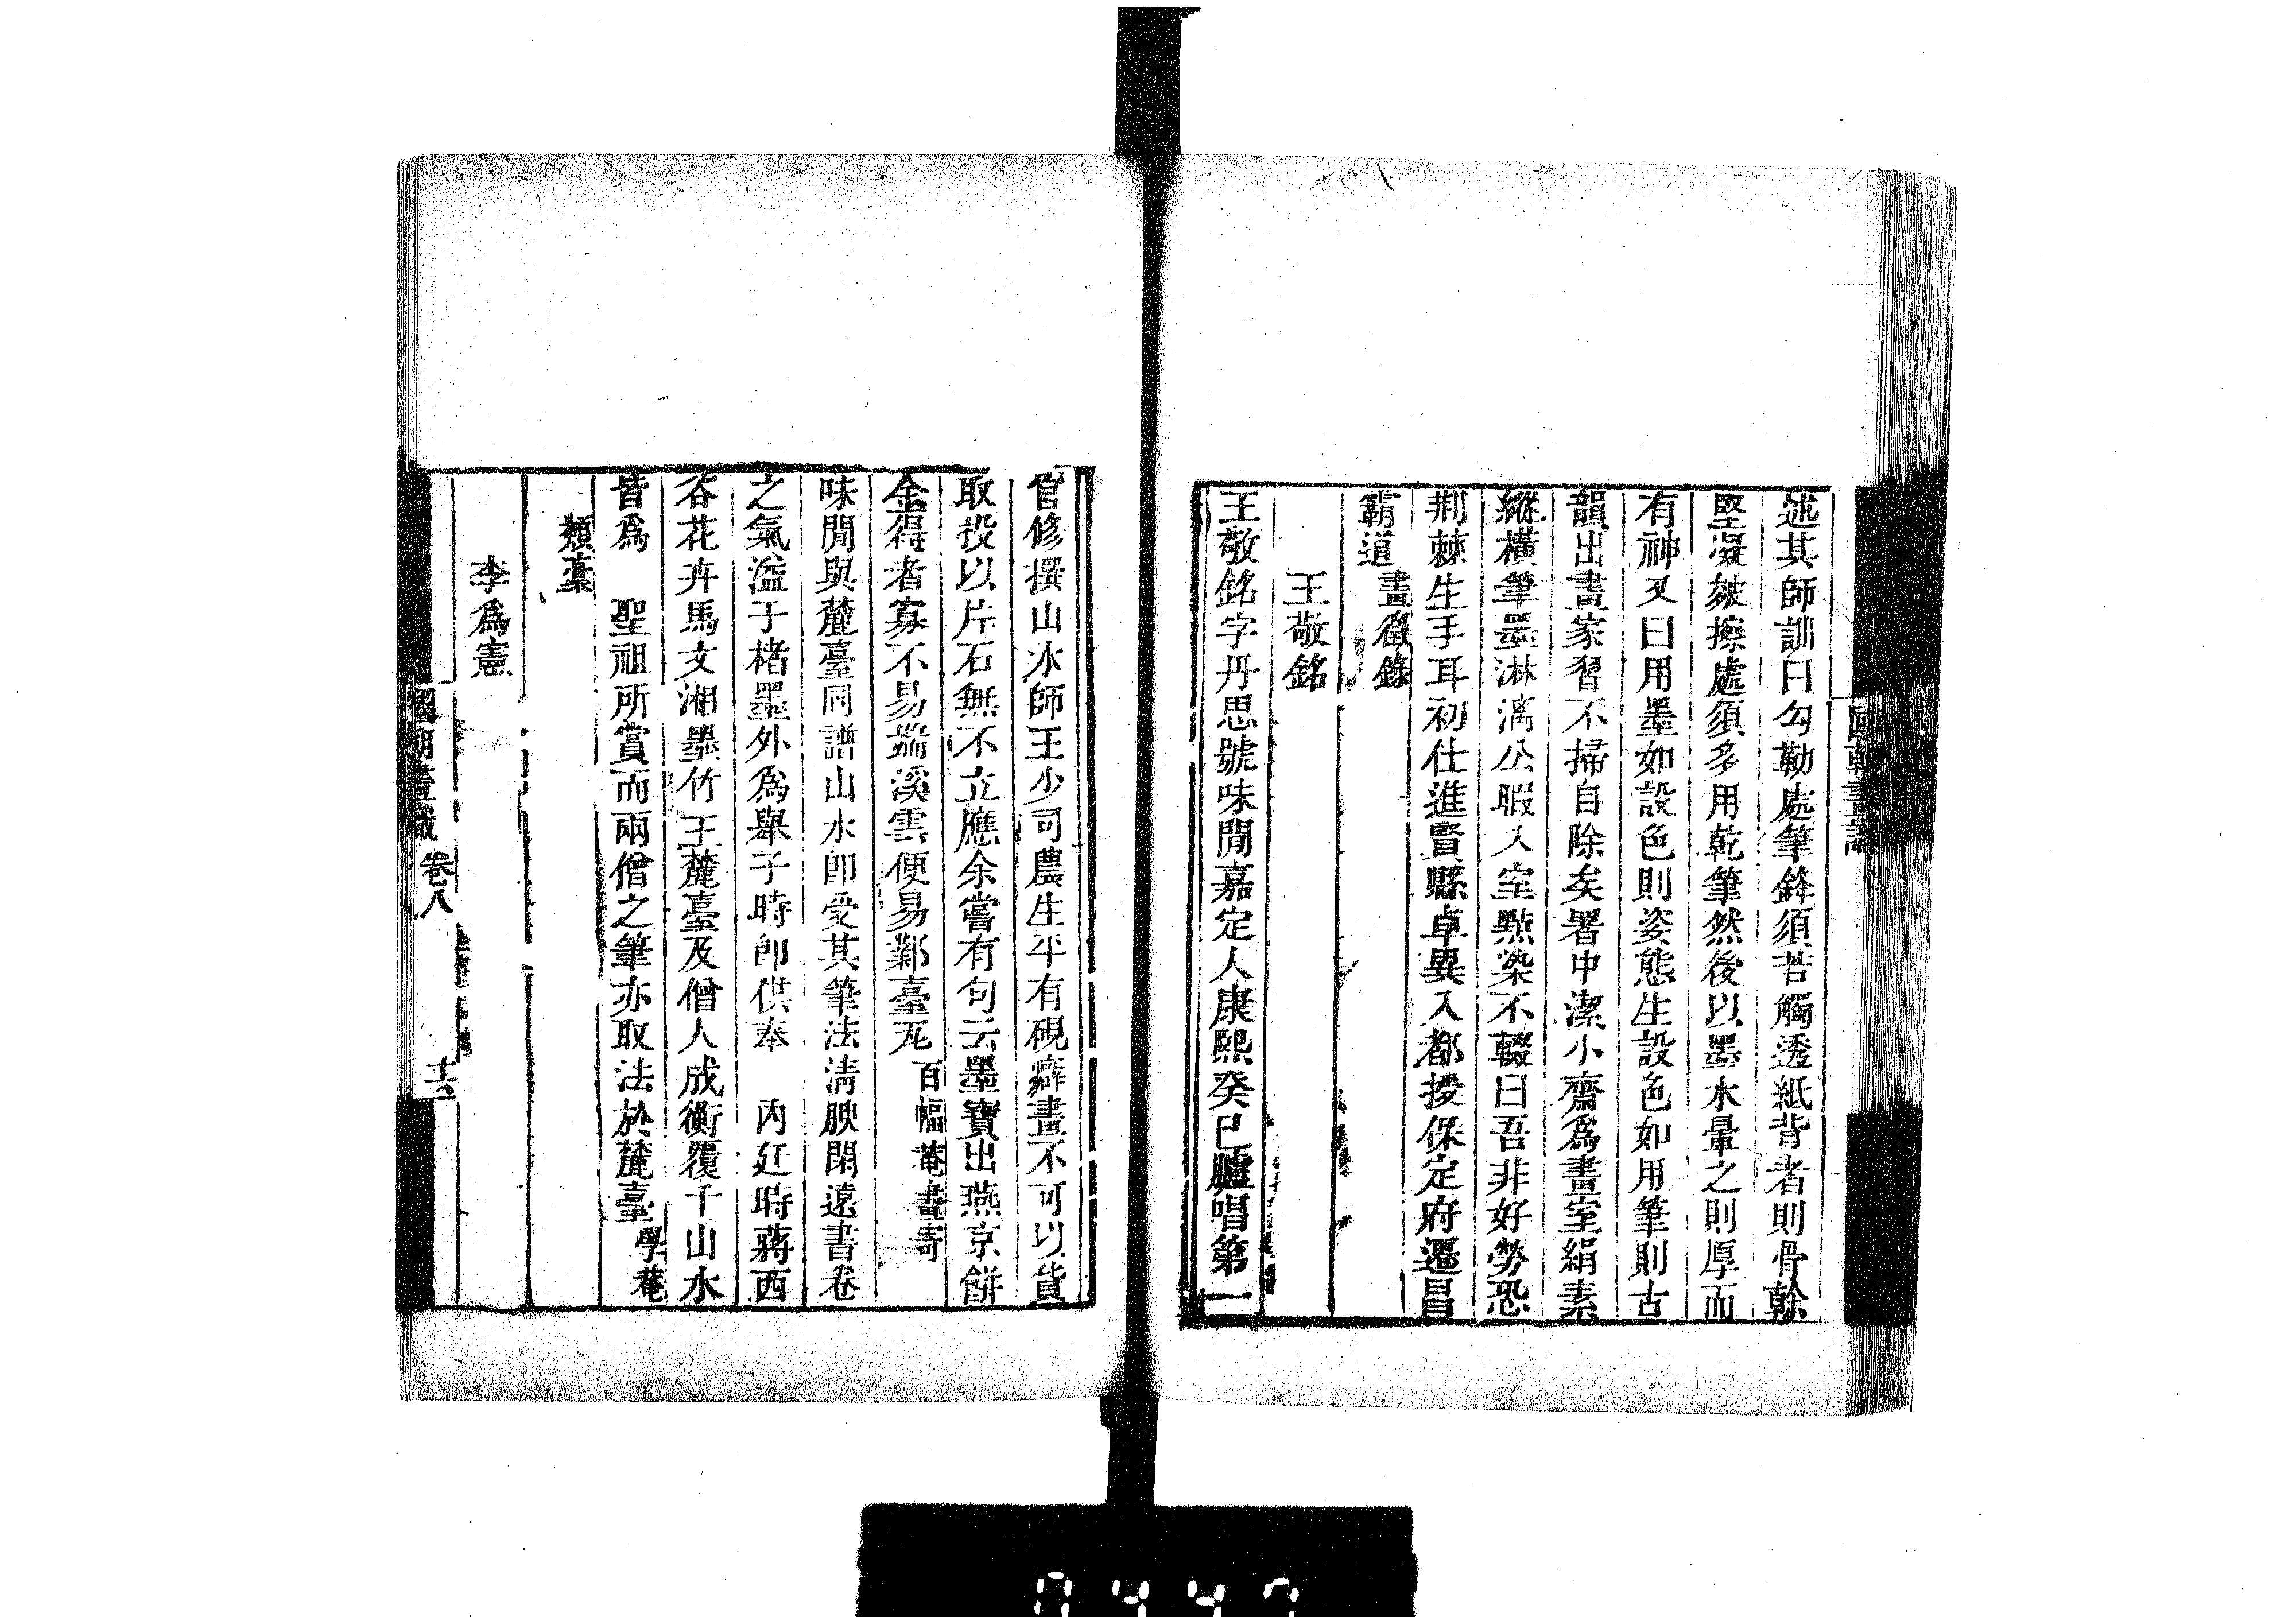 國朝畫識
述其師訓曰勾勒處筆鋒須苦觸透紙背者則骨榦
堅凝皴擦處須多用乾筆然後以墨水暈之則厚而
有神又曰用墨如設色則姿態生設色如用筆則古
韻出畫家習不掃自除矣署中潔小齋為畫室絹素
縱橫筆墨淋漓公暇入室點染不輟曰吾非好勞恐
荆棘生手耳初仕進賢縣卓異入都授保定府遷昌
霸道 畫徵錄
王敬銘
王敬銘字丹思號味閒嘉定人康熙癸巳臚唱第一
官修撰山水師王少司農生平有硯癖畫不可以貨
取投以片石無不立應余嘗有句云墨寶出燕京餅
金得者寡不易端溪雲便易鄴臺瓦 百幅菴畫寄
味閒與麓臺同譜山水卽受其筆法清腴閑遠書卷
之氣溢于楮墨外為舉子時卽供奉 內廷時蔣西
谷花卉馬文湘墨竹王麓臺及僧人成衡覆千山水
皆爲 聖祖所賞而兩僧之筆亦取法於麓臺 學菴
類稾
李爲憲
國朝畫識 卷八 十三
0447